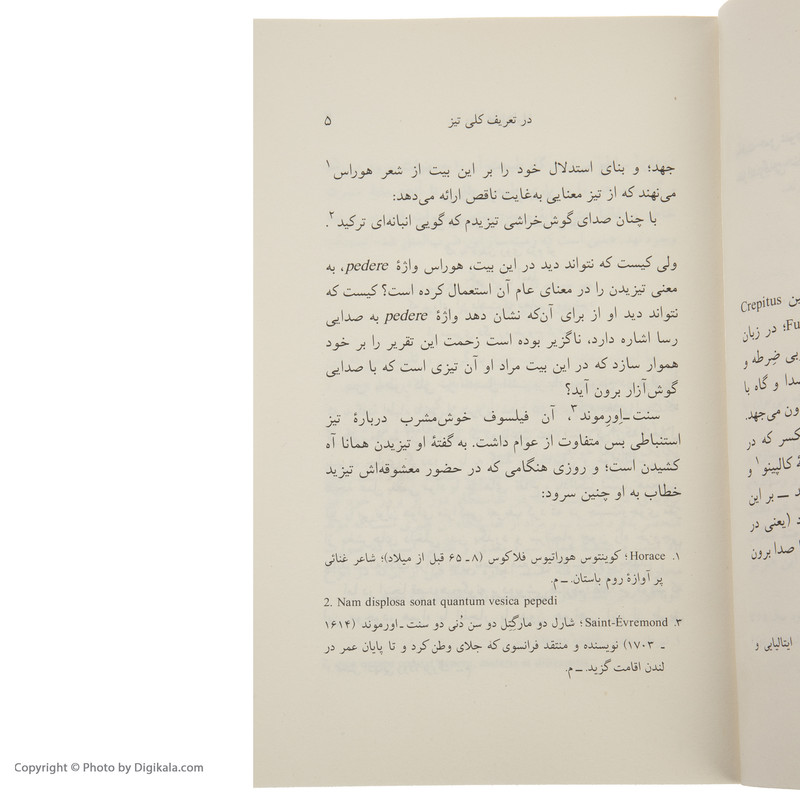 در تعریف کلی تیز ۵
جهد؛ و بنای استدلال خود را بر این بیت از شعر هوراس۱
می‌نهند که از تیز معنایی به‌غایت ناقص ارائه می‌دهد:
با چنان صدای گوش‌خراشی تیزیدم که گویی انبانه‌ای ترکید۲.
ولی کیست که نتواند دید در این بیت، هوراس واژهٔ pedere، به
معنی تیزیدن را در معنای عام آن استعمال کرده است؟ کیست که
نتواند دید او از برای آن‌که نشان دهد واژهٔ pedere به صدایی
رسا اشاره دارد، ناگزیر بوده است زحمت این تقریر را بر خود
هموار سازد که در این بیت مراد او آن تیزی است که با صدایی
گوش‌آزار برون آید؟
سنت-اِورِموند۳، آن فیلسوف خوش‌مشرب دربارهٔ تیز
استنباطی بس متفاوت از عوام داشت. به گفتهٔ او تیزیدن همانا آه
کشیدن است؛ و روزی هنگامی که در حضور معشوقه‌اش تیزید
خطاب به او چنین سرود:
۱. Horace؛ کوینتوس هوراتیوس فلاکوس (۸ ـ ۶۵ قبل از میلاد)؛ شاعر غنائی
پر آوازهٔ روم باستان. ــ م.
2. Nam displosa sonat quantum vesica pepedi
۳. Saint-Évremond؛ شارل دو مارگتِل دو سن دُنی دو سنت ـ اورموند (۱۶۱۴
ـ ۱۷۰۳) نویسنده و منتقد فرانسوی که جلای وطن کرد و تا پایان عمر در
لندن اقامت گزید. ــ م.
ین Crepitus
Fu؛ در زبان
بی ضِرطه و
صدا و گاه با
ون می‌جهد.
کسر که در
هٔ کالپینو۱ و
د ــ بر این
د (یعنی در
ا صدا برون
ایتالیایی و
Copyright © Photo by Digikala.com